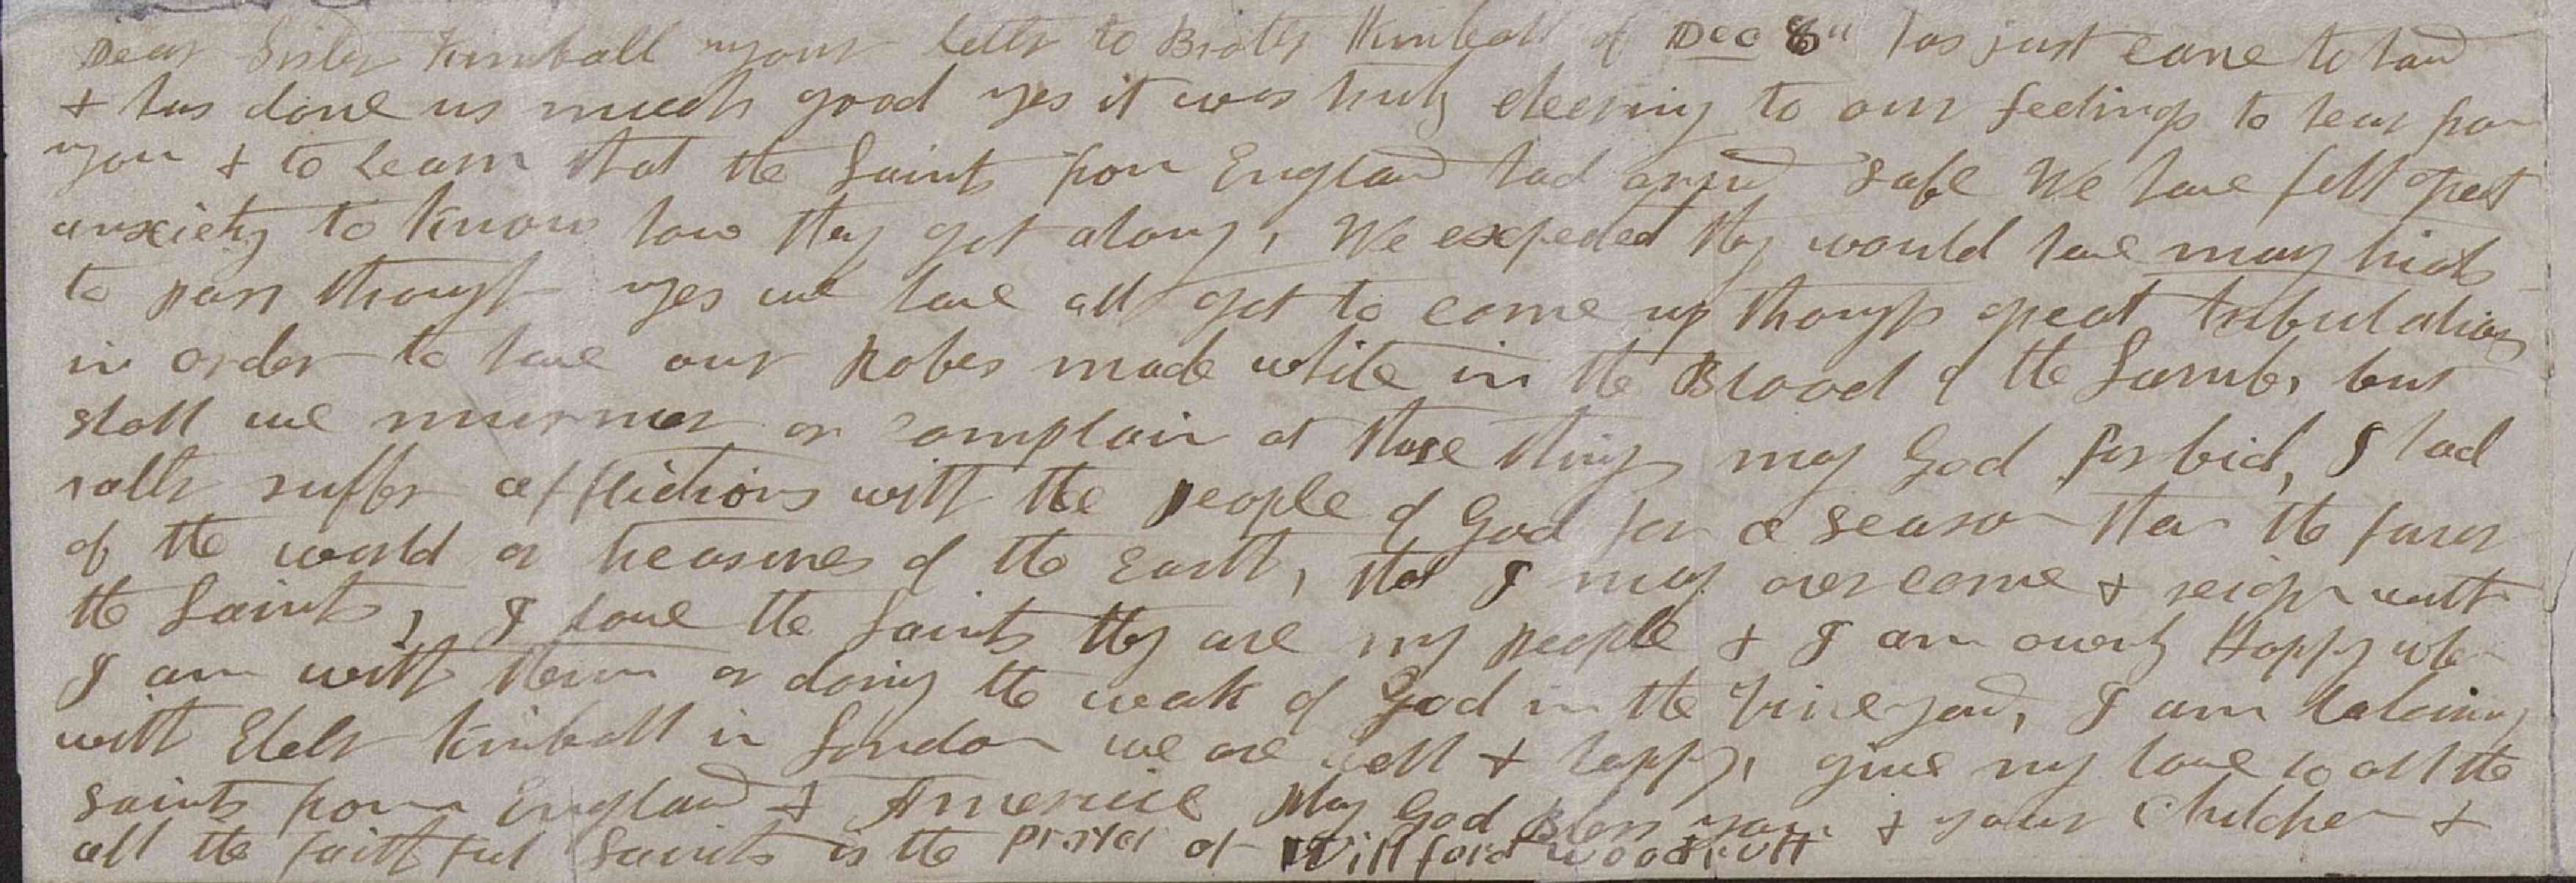 Dear Sister Kimball your letter to Brother Kimball of Dec 8" has just come to hand
& has done us much good yes it was truly cheering to our feelings to hear from
you & to learn that the Saints from England had arived safe We have felt great
anxiety to know how they got along, We expected they would have many trials
to pass through yes we have all got to come up through great tribulations
in order to have our Robes made white in the Blood of the Lamb, but
shall we murmer or complain at these things may God forbid, I had
rather suffer afflictions with the people of God for a season than the
of the world or treasures of the Earth, that I may over come & reign with
the Saints, I love the Saints they are my people & I am ownly Happy when
I am with them or doing the work of God in the Vineyard, I am laboring
with Elder Kimball in London we are well & happy, give my love to all the
Saints from England & America May God Bless you & your Children &
all the faithful Saints is the prayer of Willford Woodruff